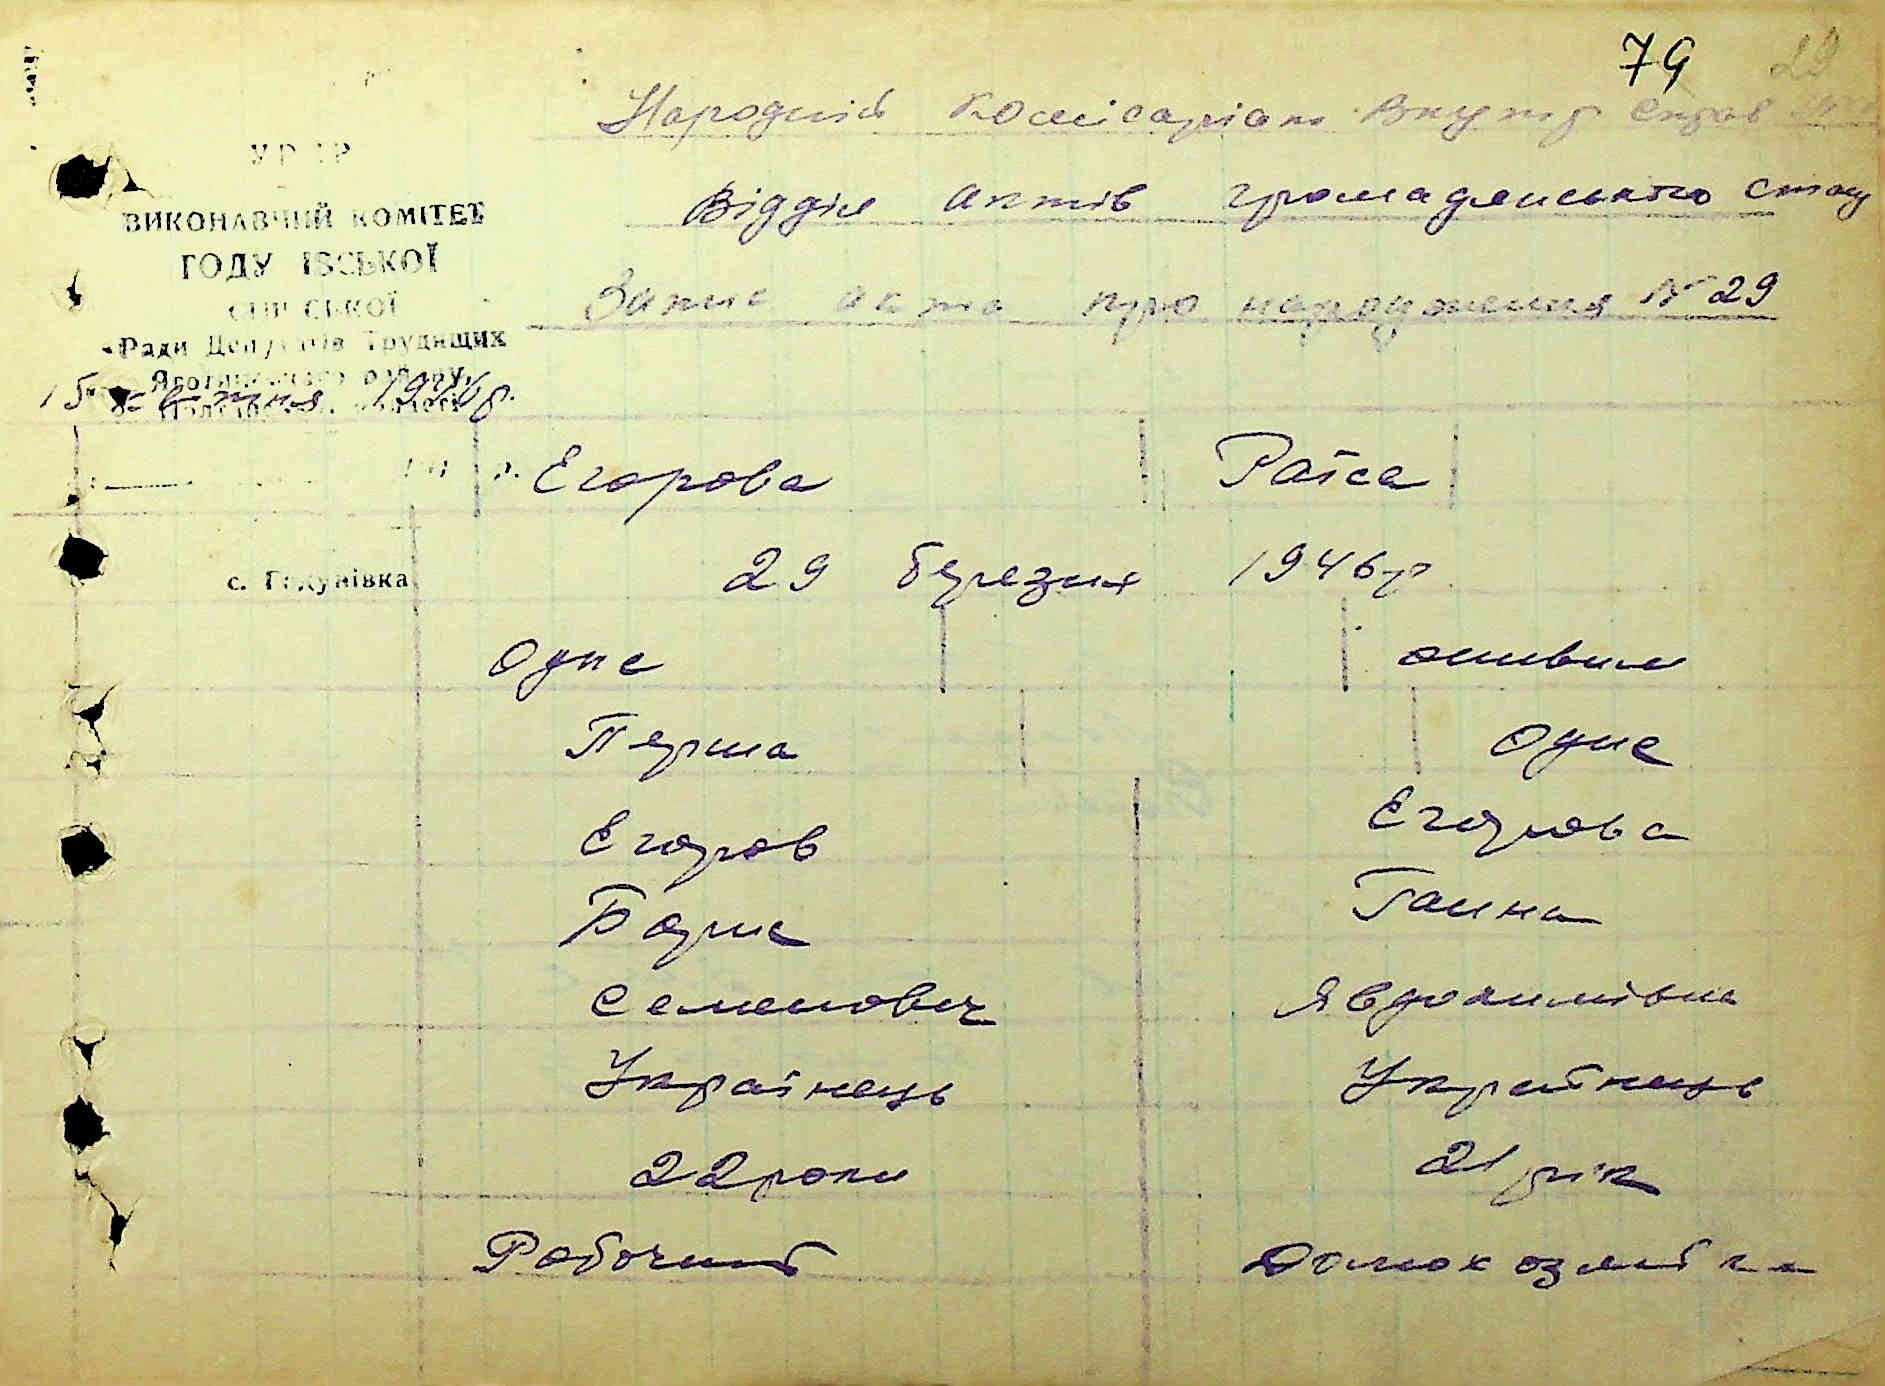 79 29
Народній Комісаріат Внутр Справ
Відділ актів громадянського стану
Запис акта про народження № 29
УРСР
ВИКОНАВЧИЙ КОМІТЕТ
ГОДУНІВСЬКОЇ
СІЛЬСЬКОЇ
Ради Депутатів Трудящих
Яготинського району,
Полтавської області
15 квітня 1946 р.
Егорова Раїса
29 березня 1946 р
с. Годунівка
Одне живим
Перша Одне
Егоров Егорова
Борис Ганна
Семенович Явдокимівна
Українець Українець
22 роки 21 рік
Робочий Домохозяйка